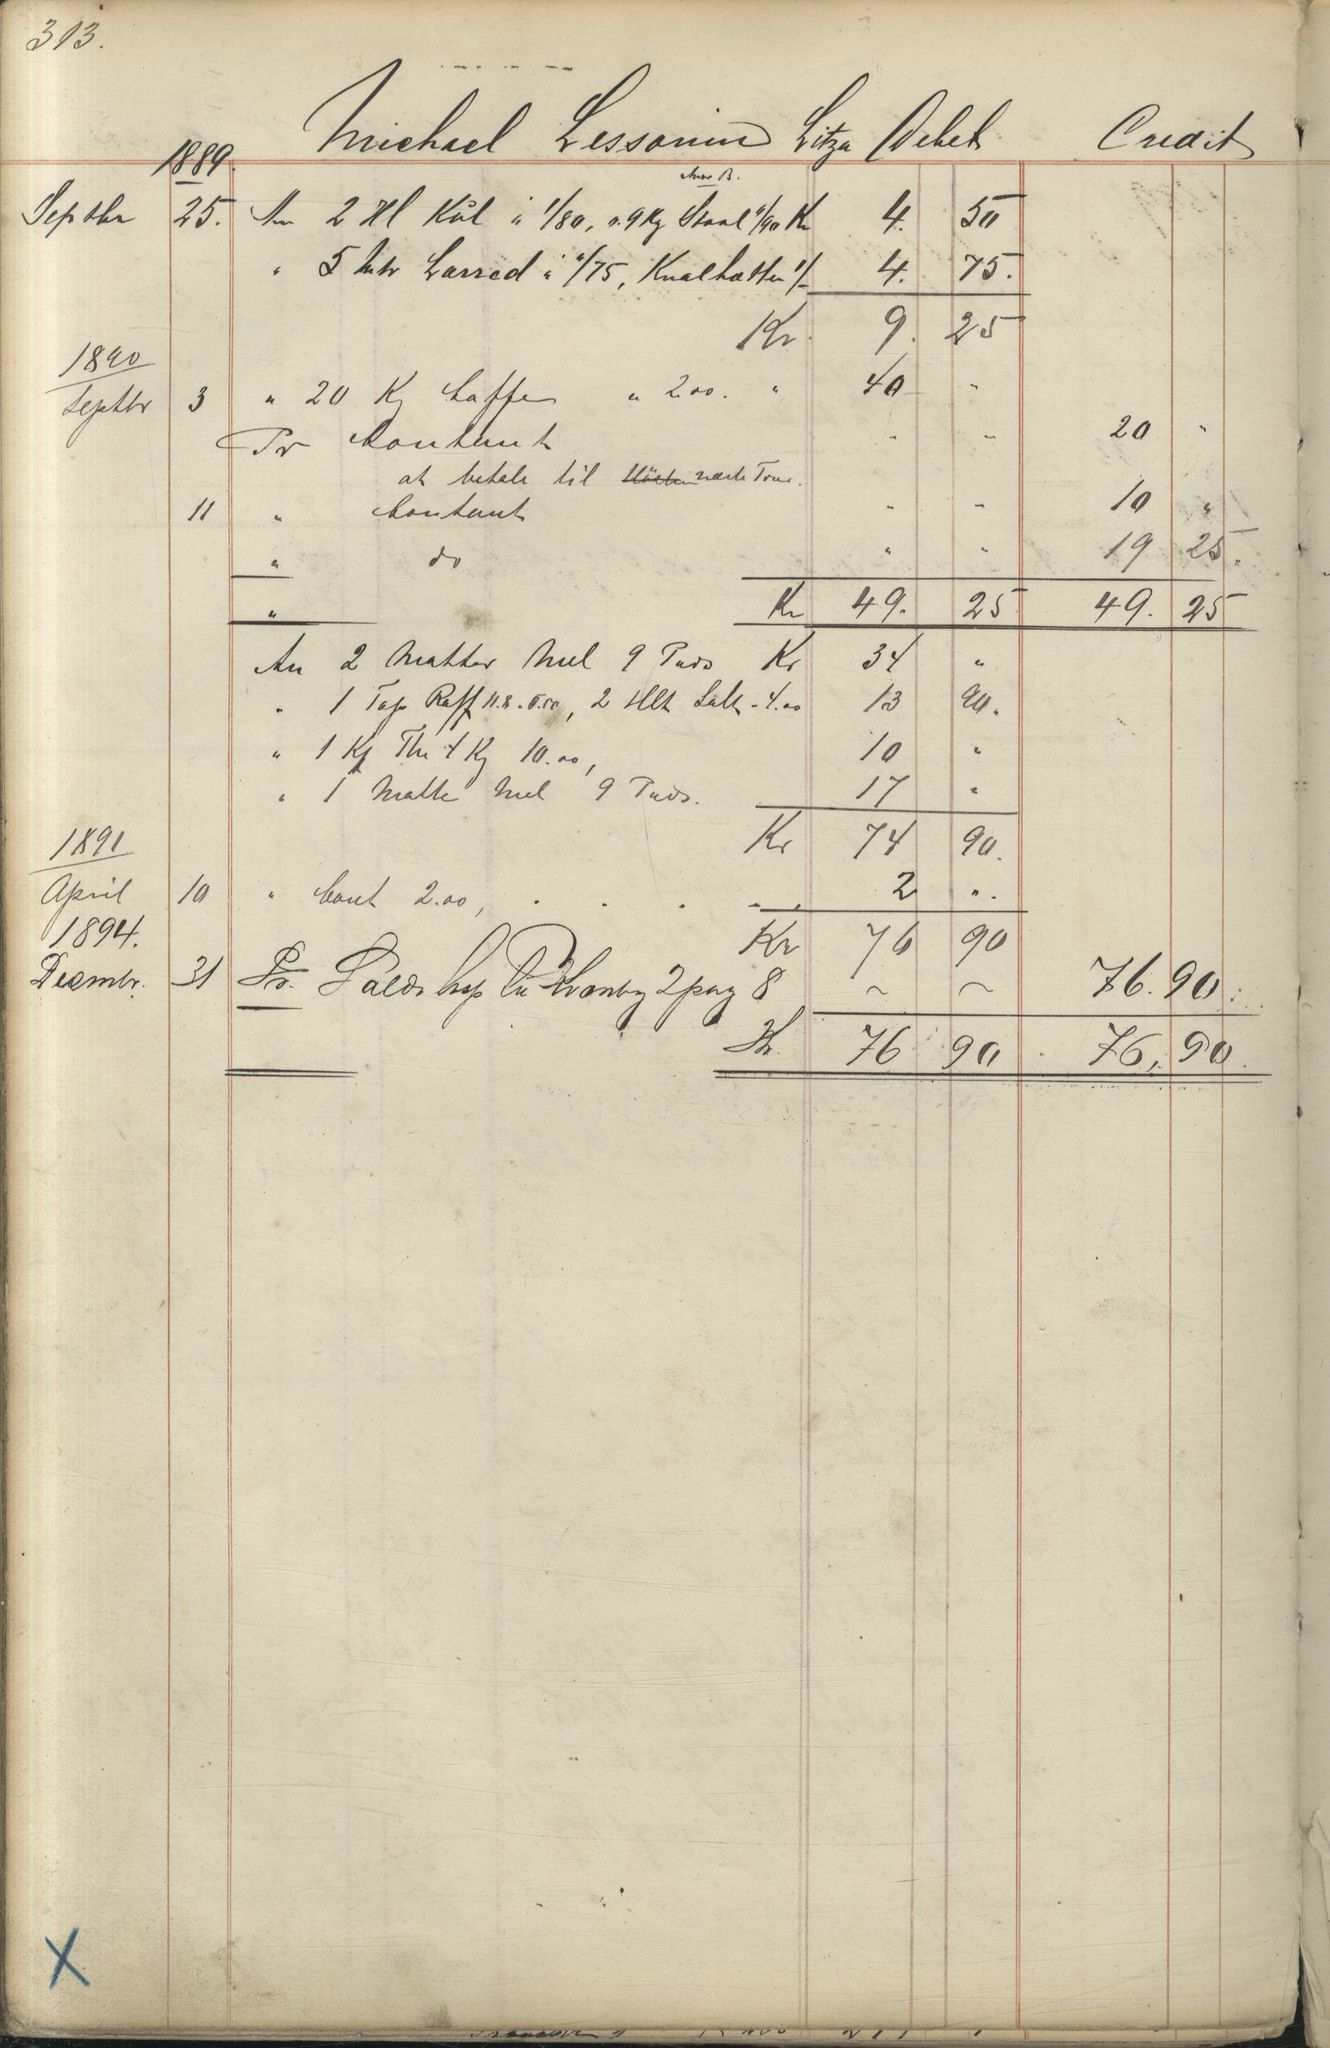 313.
Michael Lessonin Litza Debet Credit
1889.
Septbr 25. An 2 Hl Kül à 1/80, 0.9 Kg Staal 1/90 Kr 4. 50
" 5 Lærred à "/75, Knalhætter 1/- 4. 75.
Kr. 9. 25
1890
Septbr 3 " 20 Kg Caffe " 2.00. " 40 "
Pr Contant " " 20 "
at betale til næste Tour.
11 " Contant " " 10 "
" do " " 19 25.
" Kr 49. 25 49. 25
An 2 Matter Mel 9 Puds Kr 34 "
" 1 Top Raff 11.8 - 2 Hlt Salt - 4.00 13 90.
" 1 Kg The 1 Kg 10.00, 10 "
" 1 Matte Mel 9 Puds. 17 "
Kr 74 90.
1891
April 10 " Cont 2.00, . . . . . 2 ".
Kr 76 90
1894.
Decembr. 31 Pr. Saldo 2 pag 8 ~ ~ 76. 90.
Kr. 76 90 76. 90.
X